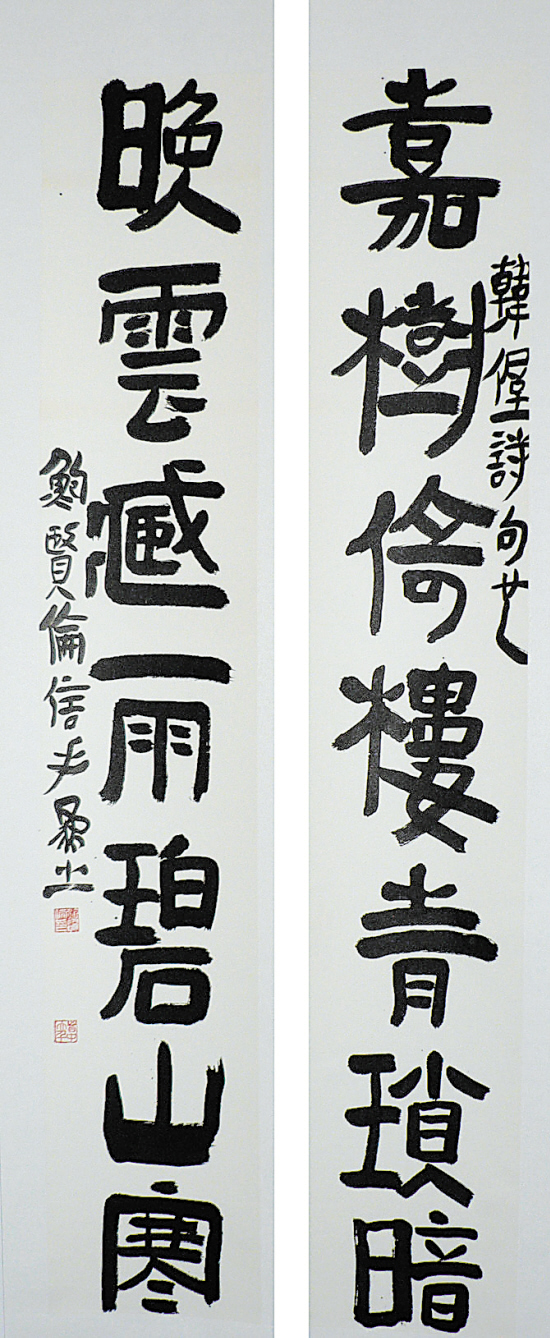 韓偓詩句也
嘉樹倚樓青瑣暗
晚雲藏雨碧山寒
鮑賢倫信手為之